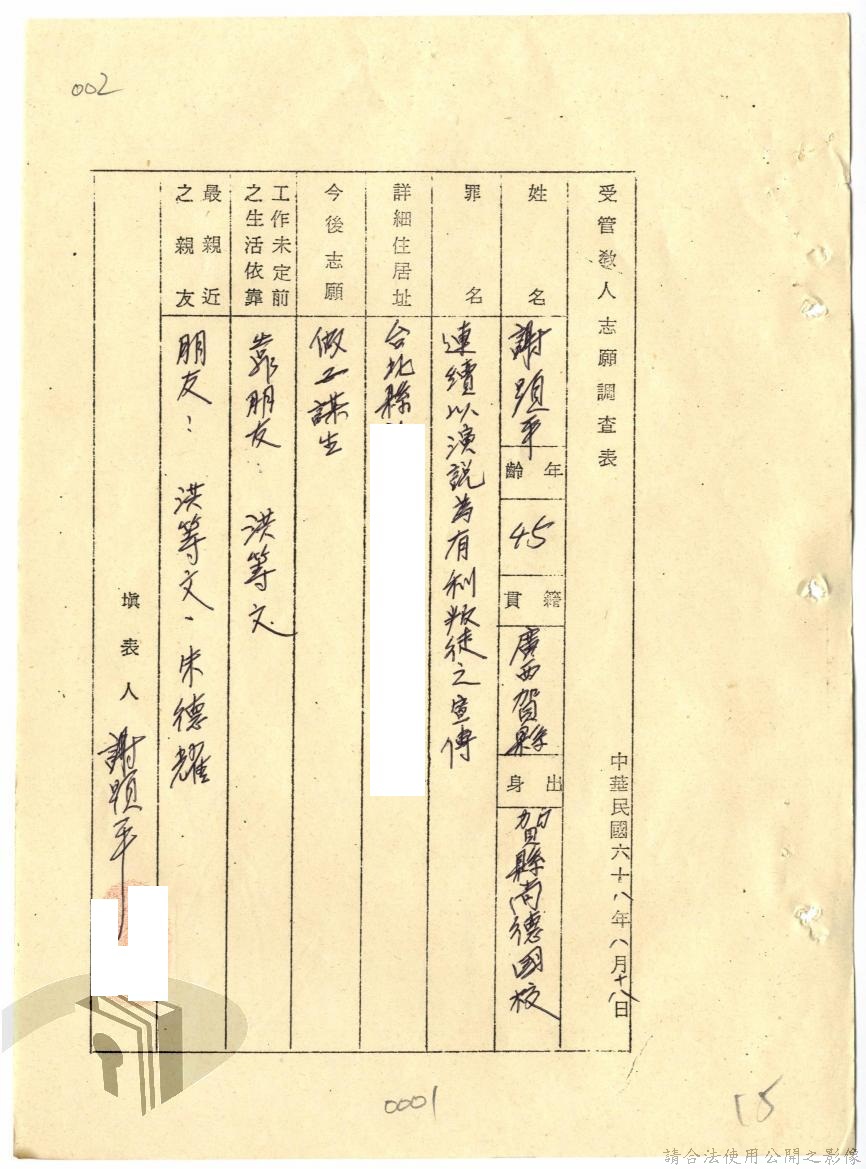 002
受管教人志願調查表
中華民國六十八年八月十八日
姓名
謝顕平
年齡
45
籍貫
廣西賀縣
出身
賀縣尚德國校
罪名
連續以演説為有利叛徒之宣傳
詳細住居址
台北縣
今後志願
做工謀生
工作未定前之生活依靠
靠朋友：洪等文
最親近之親友
朋友：洪等文、朱德耀
填表人 謝顕平
0001
15
請合法使用公開之影像